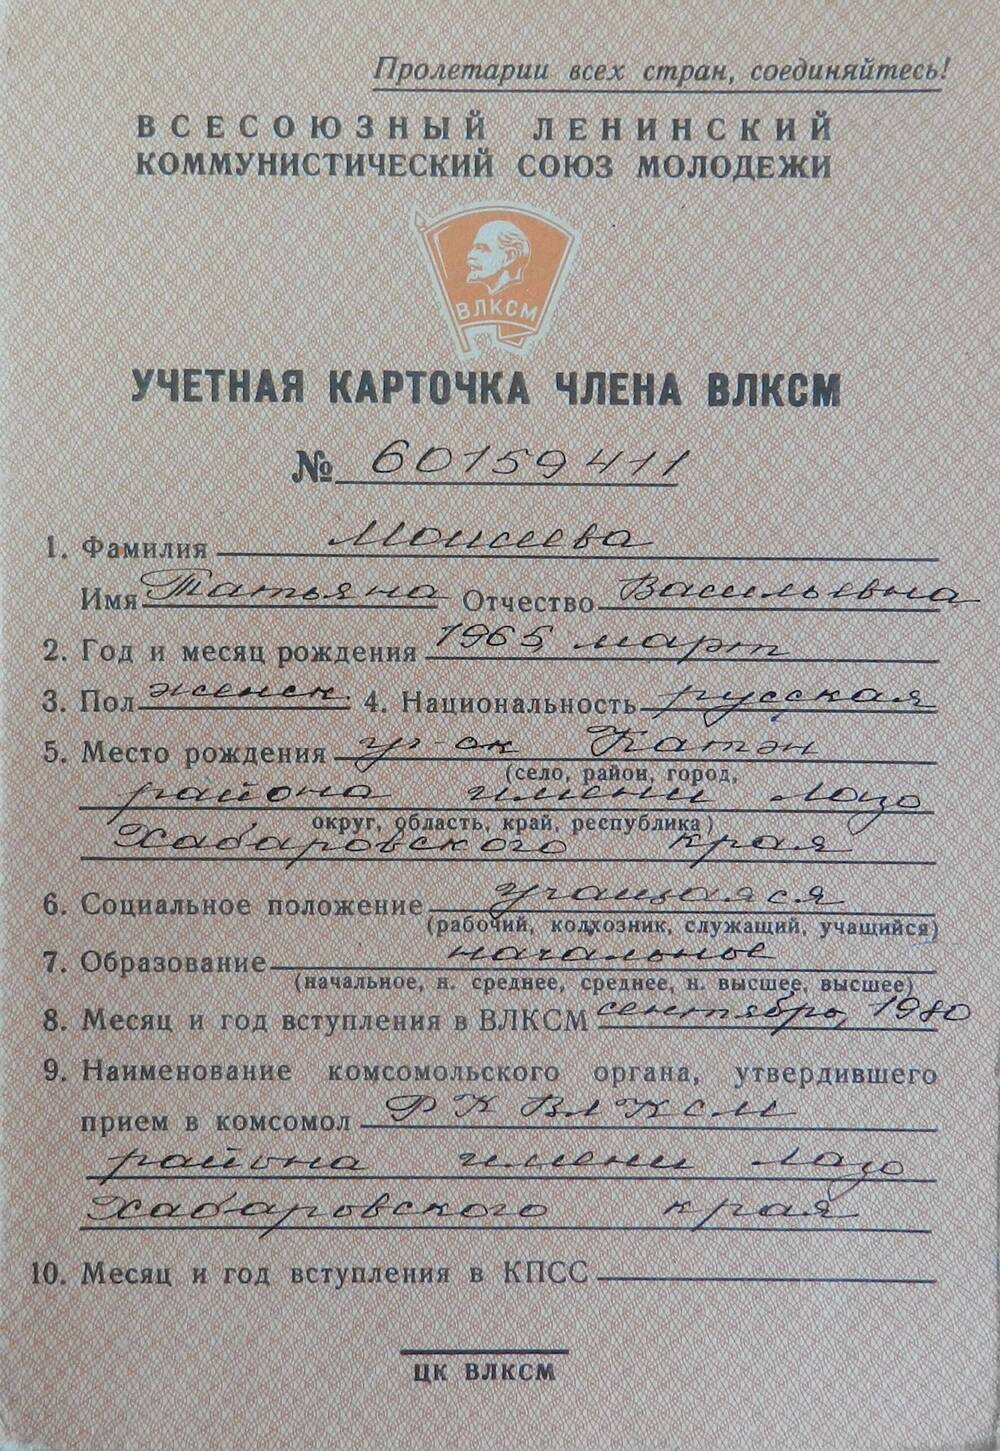 Пролетарии всех стран, соединяйтесь!
ВСЕСОЮЗНЫЙ ЛЕНИНСКИЙ
КОММУНИСТИЧЕСКИЙ СОЮЗ МОЛОДЕЖИ
ВЛКСМ
УЧЕТНАЯ КАРТОЧКА ЧЛЕНА ВЛКСМ
№ 60159411
1. Фамилия Моисеева
Имя Татьяна Отчество Васильевна
2. Год и месяц рождения 1965, март
3. Пол женск. 4. Национальность русская
5. Место рождения ур-ок Катэн
(село, район, город,
района имени Лазо
округ, область, край, республика)
Хабаровского края
6. Социальное положение учащаяся
(рабочий, колхозник, служащий, учащийся)
7. Образование начальное
(начальное, н. среднее, среднее, н. высшее, высшее)
8. Месяц и год вступления в ВЛКСМ сентябрь, 1980
9. Наименование комсомольского органа, утвердившего
прием в комсомол РК ВЛКСМ
района имени Лазо
Хабаровского края
10. Месяц и год вступления в КПСС
ЦК ВЛКСМ